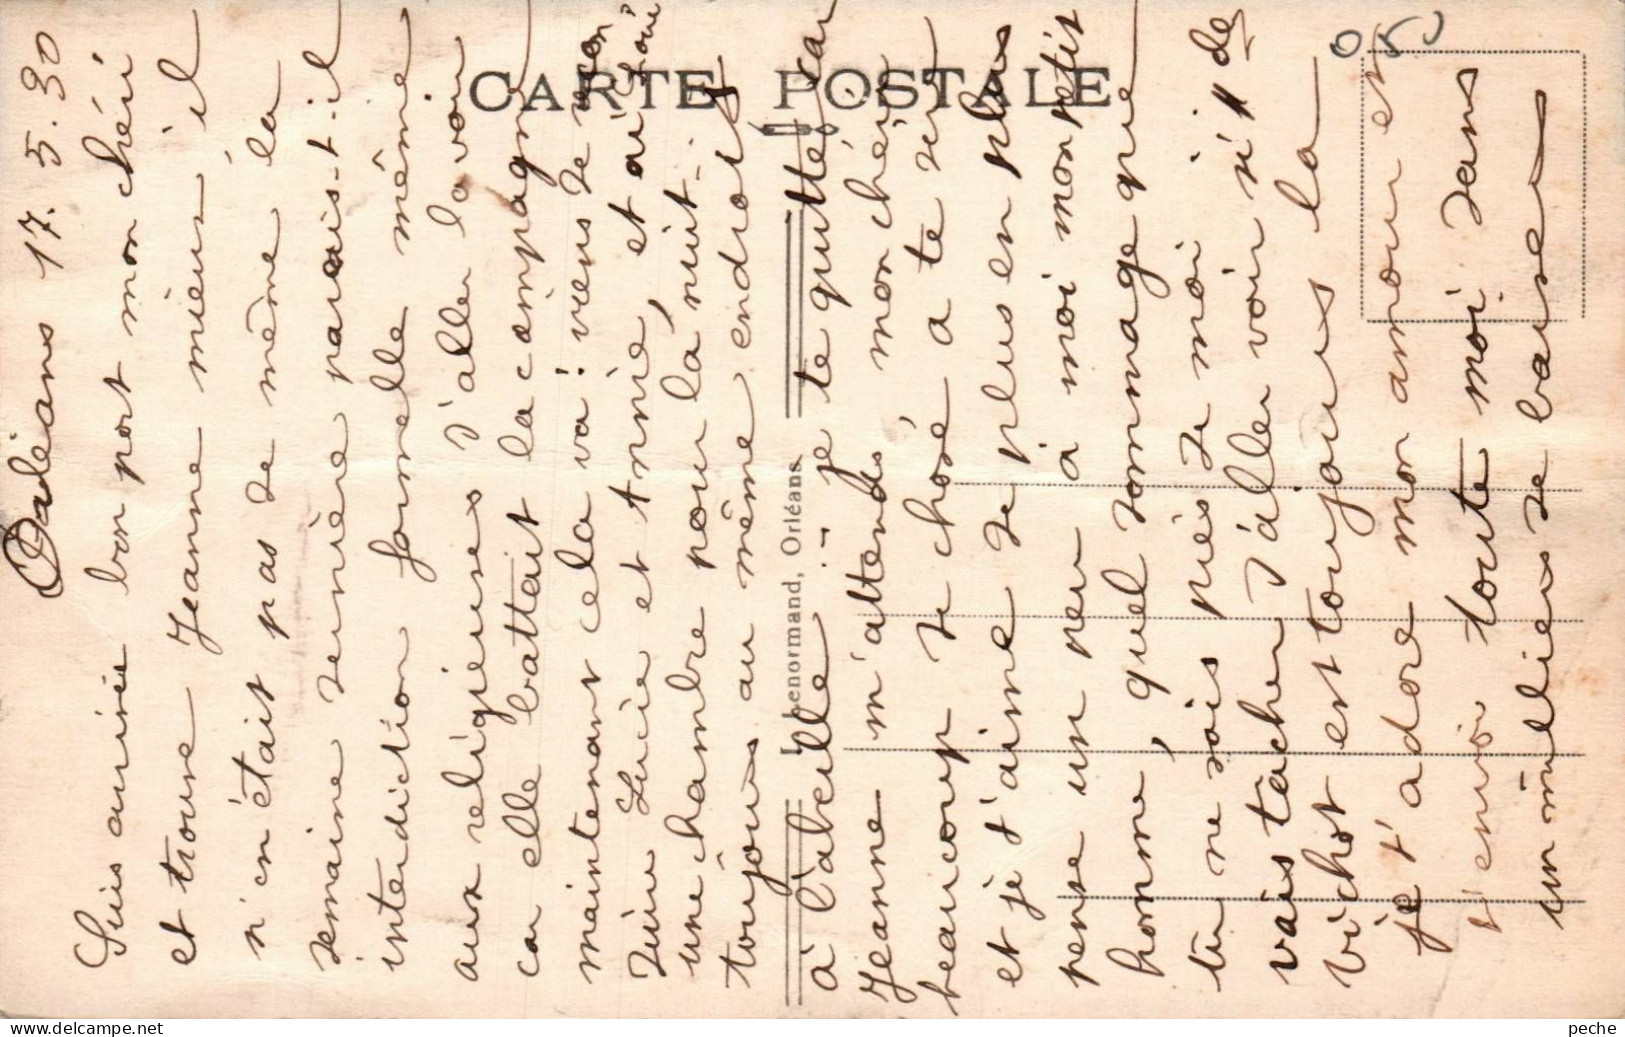 Orléans 17.5.30
Suis arrivée bon port mon chéri
et trouve Jeanne mieux il
n'en était pas de même la
semaine dernière parais-t-il
interdiction formelle même
aux religieuses d'aller la voir
car elle battait la campagne
maintenant cela va! viens de rencon
Lucie et Annie, et ai loué
une chambre pour la nuit -
toujours au même endroit
à l'abeille .. je te quitte car
Jeanne m'attends, mon chéri
beaucoup de chose a te dire
et je t'aime de plus en plus
pense un peu à moi mon petit
homme, quel dommage que
tu ne sois près de moi
vais tacher d'aller voir si
Vichot est toujours la
je t'adore mon amour et
t'envoi toute moi dans
un milliers de baisers
CARTE POSTALE
Lenormand, Orléans
peche